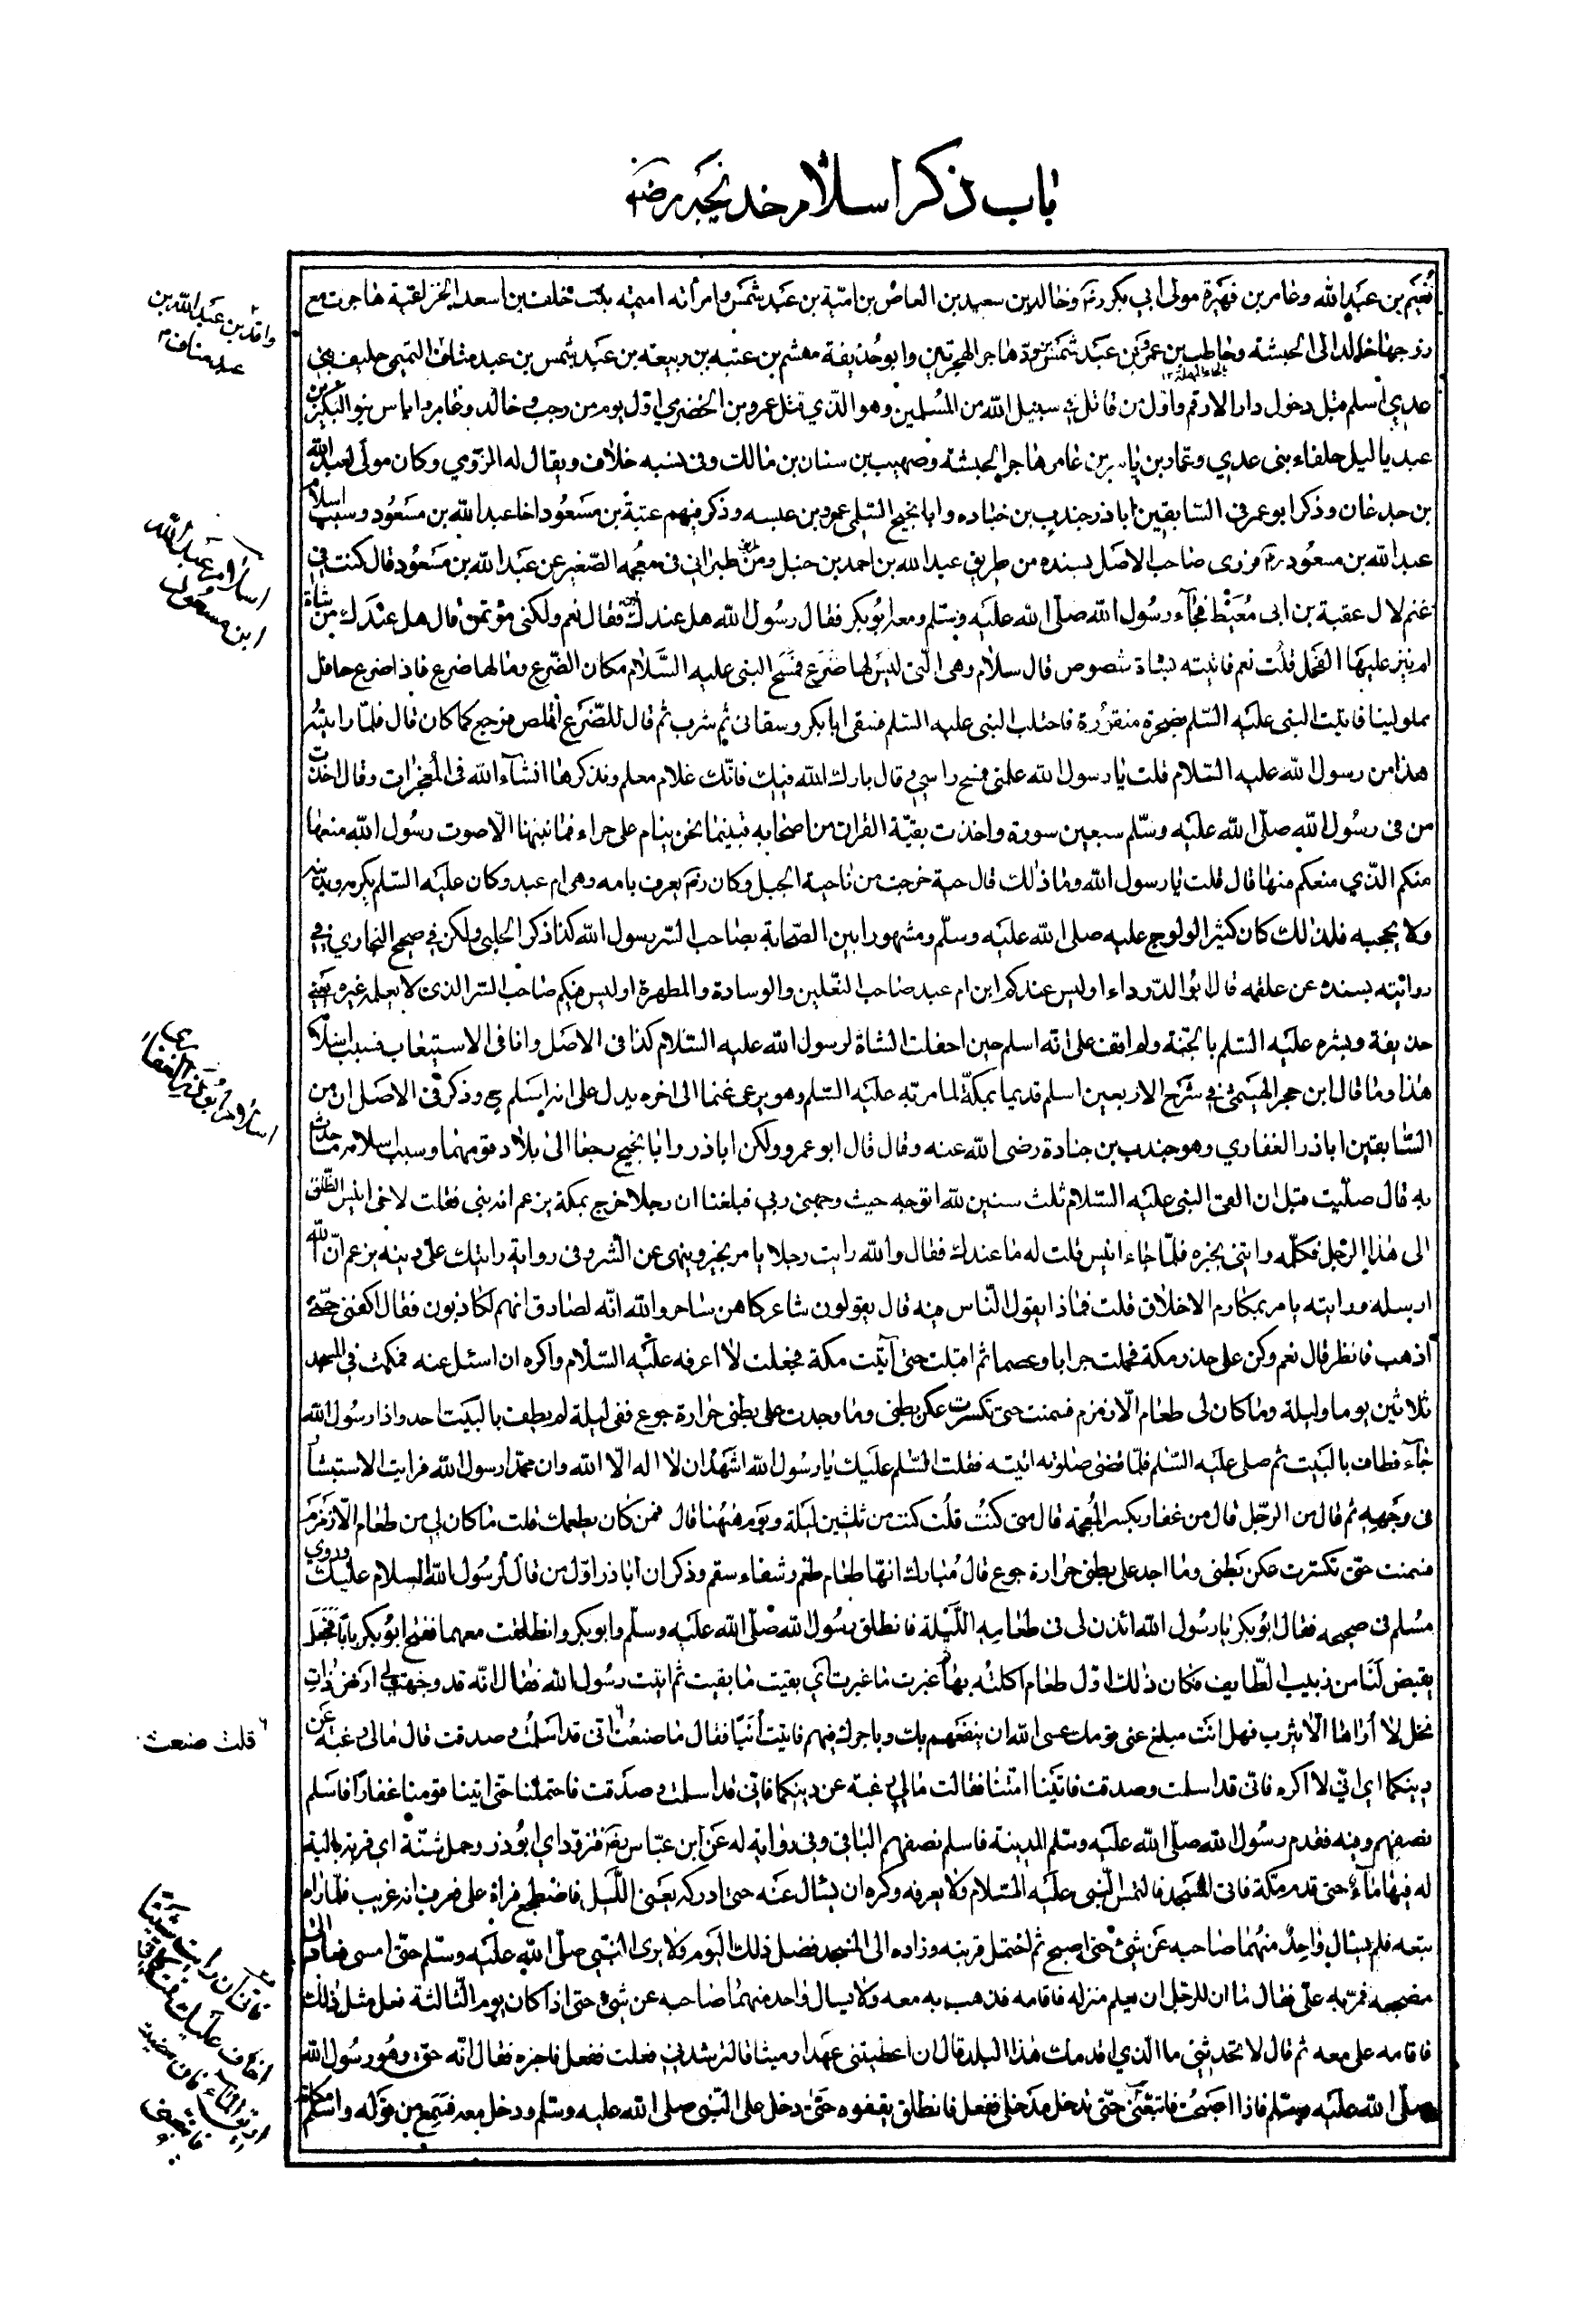 باب ذكر اسلام خديجه رضى
نعيم بن عبد الله وعامر بن فهيرة مولى ابي بكر رضى وخالد بن سعيد بن العاص بن امية بن عبد شمس وامرأته امينه بنت خلف بن اسعد الخزاعية هاجرت مع
زوجها خالد الى الحبشه وحاطب بن عمرو بن عبد شمس بن ودّ هاجر الهجرتين وابو حذيفة مهشم بن عتبه بن ربيعه بن عبد شمس بن عبد مناف التميمى حليف بنى
عدي اسلم قبل دخول دار الارقم واوّل من قاتل في سبيل الله من المسلمين وهو الذي قتل عمرو بن الحضرمي اوّل يوم من رجب وخالد وعامر واياس بنو البكير بن
عبد ياليل حلفاء بنى عدي وعمار بن ياسر بن عامر هاجر الحبشه وصهيب بن سنان بن مالك وفى نسبه خلاف ويقال له الرّومي وكان مولى لعبد الله
بن جدعان وذكر ابو عمر فى السّابقين اباذر جندب بن جناده وابا نجيح السّلمى عمرو بن عبسه وذكر فيهم عتبة بن مسعود اخا عبد الله بن مسعود وسبب اسلام
عبد الله بن مسعود رضى فروى صاحب الاصل بسنده من طريق عبد الله بن احمد بن حنبل ومن طريق طبرانى فى معجمه الصّغير عن عبد الله بن مسعود قال كنت في
غنم لال عقبة بن ابى مُعَيْط فجآء رسول الله صلّى الله عليه وسلّم ومعه ابو بكر فقال رسول الله هل عندك لبن فقال نعم ولكنى مؤتمن قال هل عندك من شاة
لم ينز عليها الفحل قلت نعم فاتيته بشاة شصوص قال سلام وهى الّتى ليس لها ضرع فمسح النبى عليه السّلام مكان الضّرع وما لها ضرع فاذا ضرع حافل
مملو لبنا فاتيت النبى عليه السّلم بصخرة منقورة فاحتلب النبى عليه السّلم فسقى ابابكر وسقانى ثم شرب ثم قال للضّرع اقلص فرجع كما كان قال فلمّا رايت
هذا من رسول الله عليه السّلام قلت يا رسول الله علمنى فمسح راسي قال بارك الله فيك فانّك غلام معلم ونذكرها انشآء الله فى المعجزات وقال اخذت
من فى رسول الله صلّى الله عليه وسلّم سبعين سورة واخذت بقيّة القران من اصحابه فبينما نحن نيام على حراء فما نبهنا الّا صوت رسول الله منعها
منكم الّذي منعكم منها قال قلت يا رسول الله وما ذلك قال حية خرجت من ناحية الجبل وكان رضى يعرف بامه وهى ام عبد وكان عليه السّلم يكرمه ويدنيه
ولا يحجبه فلذلك كان كثير الولوج عليه صلى الله عليه وسلّم ومشهورا بين الصّحابة بصاحب السّر رسول الله كذا ذكر الحلبى ولكن في صحيح البخاري في
روايته بسنده عن علقمه قال ابو الدّرداء اوليس عندكم ابن ام عبد صاحب النّعلين والوسادة والمطهرة اوليس فيكم صاحب السّر الذى لا يعلمه غيره يعنى
حذيفة وبشره عليه السّلم بالجنّة ولم اقف على انّه اسلم حين احفلت الشاة لرسول الله عليه السّلام كذا فى الاصل واما فى الاستيعاب فسبب اسلامه
هذا وما قال ابن حجر الهيتمى في شرح الاربعين اسلم قديما بمكة لما مر به عليه السّلم وهو يرعى غنما الى اخره يدل على انه اسلم ح وذكر فى الاصل ان من
السّابقين اباذر الغفاري وهو جندب بن جنادة رضى الله عنه وقال قال ابو عمرو ولكن اباذر وابا نجيح رجعا الى بلاد قومهما وسبب اسلامه ما حدث
به قال صلّيت قبل ان القى النبى عليه السّلام ثلث سنين لله اتوجه حيث وجهنى ربي فبلغنا ان رجلا خرج بمكة يزعم انه نبى فقلت لاخى انيس انطلق
الى هذا الرّجل فكلّمه واتنى بخبره فلمّا جاء انيس قلت له ما عندك فقال والله رايت رجلا يامر بخير وينهى عن الشر وفى رواية رايتك على دينه يزعم انّ الله
ارسله ورايته يامر بمكارم الاخلاق قلت فماذا يقول النّاس فيه قال يقولون شاعر كاهن ساحر والله انّه لصادق انهم لكاذبون فقال اكفنى حتّى
اذهب فانظر قال نعم وكن على حذر مكة فحملت جرابا وعصا ثم اقبلت حتى اتيت مكة فجعلت لا اعرفه عليه السّلام واكره ان اسئل عنه فمكثت في المسجد
ثلاثين يوما وليلة وما كان لى طعام الّا زمزم فسمنت حتى تكسرت عكن بطنى وما وجدت على بطنى حرارة جوع ففى ليلة لم يطف بالبيت احد واذا رسول الله
جآء فطاف بالبيت ثم صلى عليه السّلم فلمّا قضى صلوته اتيته فقلت السّلم عليك يا رسول الله اشهد ان لا اله الّا الله وان محمّدا رسول الله فرايت الاستبشار
فى وجهه ثم قال من الرّجل قال من غفار بكسر المعجمة قال متى كنتُ قلت كنت من ثلثين ليلة ويوم ههنا قال فمن كان يطعمك قلت ما كان لي من طعام الّا زمزم
فسمنت حتى تكسّرت عكن بطنى وما اجد على بطنى حرارة جوع قال مُبارك انها طعام طعم وشفاء سقم وذكر ان اباذر اوّل من قال لرسول الله السلام عليك وروي
مسلم فى صحيحه فقال ابو بكر يا رسول الله ائذن لى فى طعامه اللّيلة فانطلق رسول الله صلّى الله عليه وسلّم وابو بكر وانطلقت معهما ففتح ابو بكر بابا فجعل
يقبض لنا من زبيب الطّايف فكان ذلك اوّل طعام اكلته بها غبرت ما غبرت اي بقيت ما بقيت ثم اتيت رسول الله فقال انّه قد وجّهت لي ارض ذات
نخل لا اراها الّا يثرب فهل انت مبلغ عنى قومك عسى الله ان ينفعهم بك وياجرك فيهم فاتيت أنيسا فقال ما صنعت انى قد اسلمت وصدقت قال ما لى رغبة عن
دينكما اي انّي لا اكره فانى قد اسلمت وصدقت فاتينا امّنا فقالت ما لي رغبه عن دينكما فانى قد اسلمت وصدّقت فاحتملنا حتى اتينا قومنا غفارا فاسلم
نصفهم وفيه فقدم رسول الله صلّى الله عليه وسلّم المدينة فاسلم نصفهم الباقى وفى رواية له عن ابن عبّاس رضى فتزوّد اي ابو ذر وحمل شنّة اي قربة بالية
له فيها مآء حتى قدم مكة فاتى المسجد فالتمس النّبى عليه السّلام ولا يعرفه وكره ان يسال عنه حتى ادركه يعنى اللّيل فاضطجع فراه على فعرف انه غريب فلمّا راه
تبعه فلم يسال واحد منهما صاحبه عن شئ حتى اصبح ثم احتمل قربته وزاده الى المسجد فضل ذلك اليوم ولا يرى النّبى صلّى الله عليه وسلّم حتّى امسى فعاد الى
مضجعه فمرّ به علىّ فقال ما ان للرّجل ان يعلم منزله فاقامه فذهب به معه ولا يسال واحد منهما صاحبه عن شئ حتى اذا كان يوم الثّالثة فعل مثل ذلك
فاقامه على معه ثم قال لا تحدثنى ما الّذي اقدمك هذا البلد قال ان اعطيتنى عهدا وميثاقا لترشدنى فعلت ففعل فاخبره فقال انّه حق وهو رسول الله
صلّى الله عليه وسلّم فاذا اصبحت فاتبعنى حتّى تدخل مدخلى ففعل فانطلق يقفوه حتّى دخل على النّبى صلى الله عليه وسلّم ودخل معه فسمع من قوله واسلم مكانه
واقد بن عبد الله بن
عبد مناف م
اسلام عبد الله
ابن مسعود
اسلام ابو ذر الغفاري
قلت صنعت
فانى ان رايت شيئا
اخاف عليك قمت كانى
اريق المآء فان مضيت
فاتبعنى